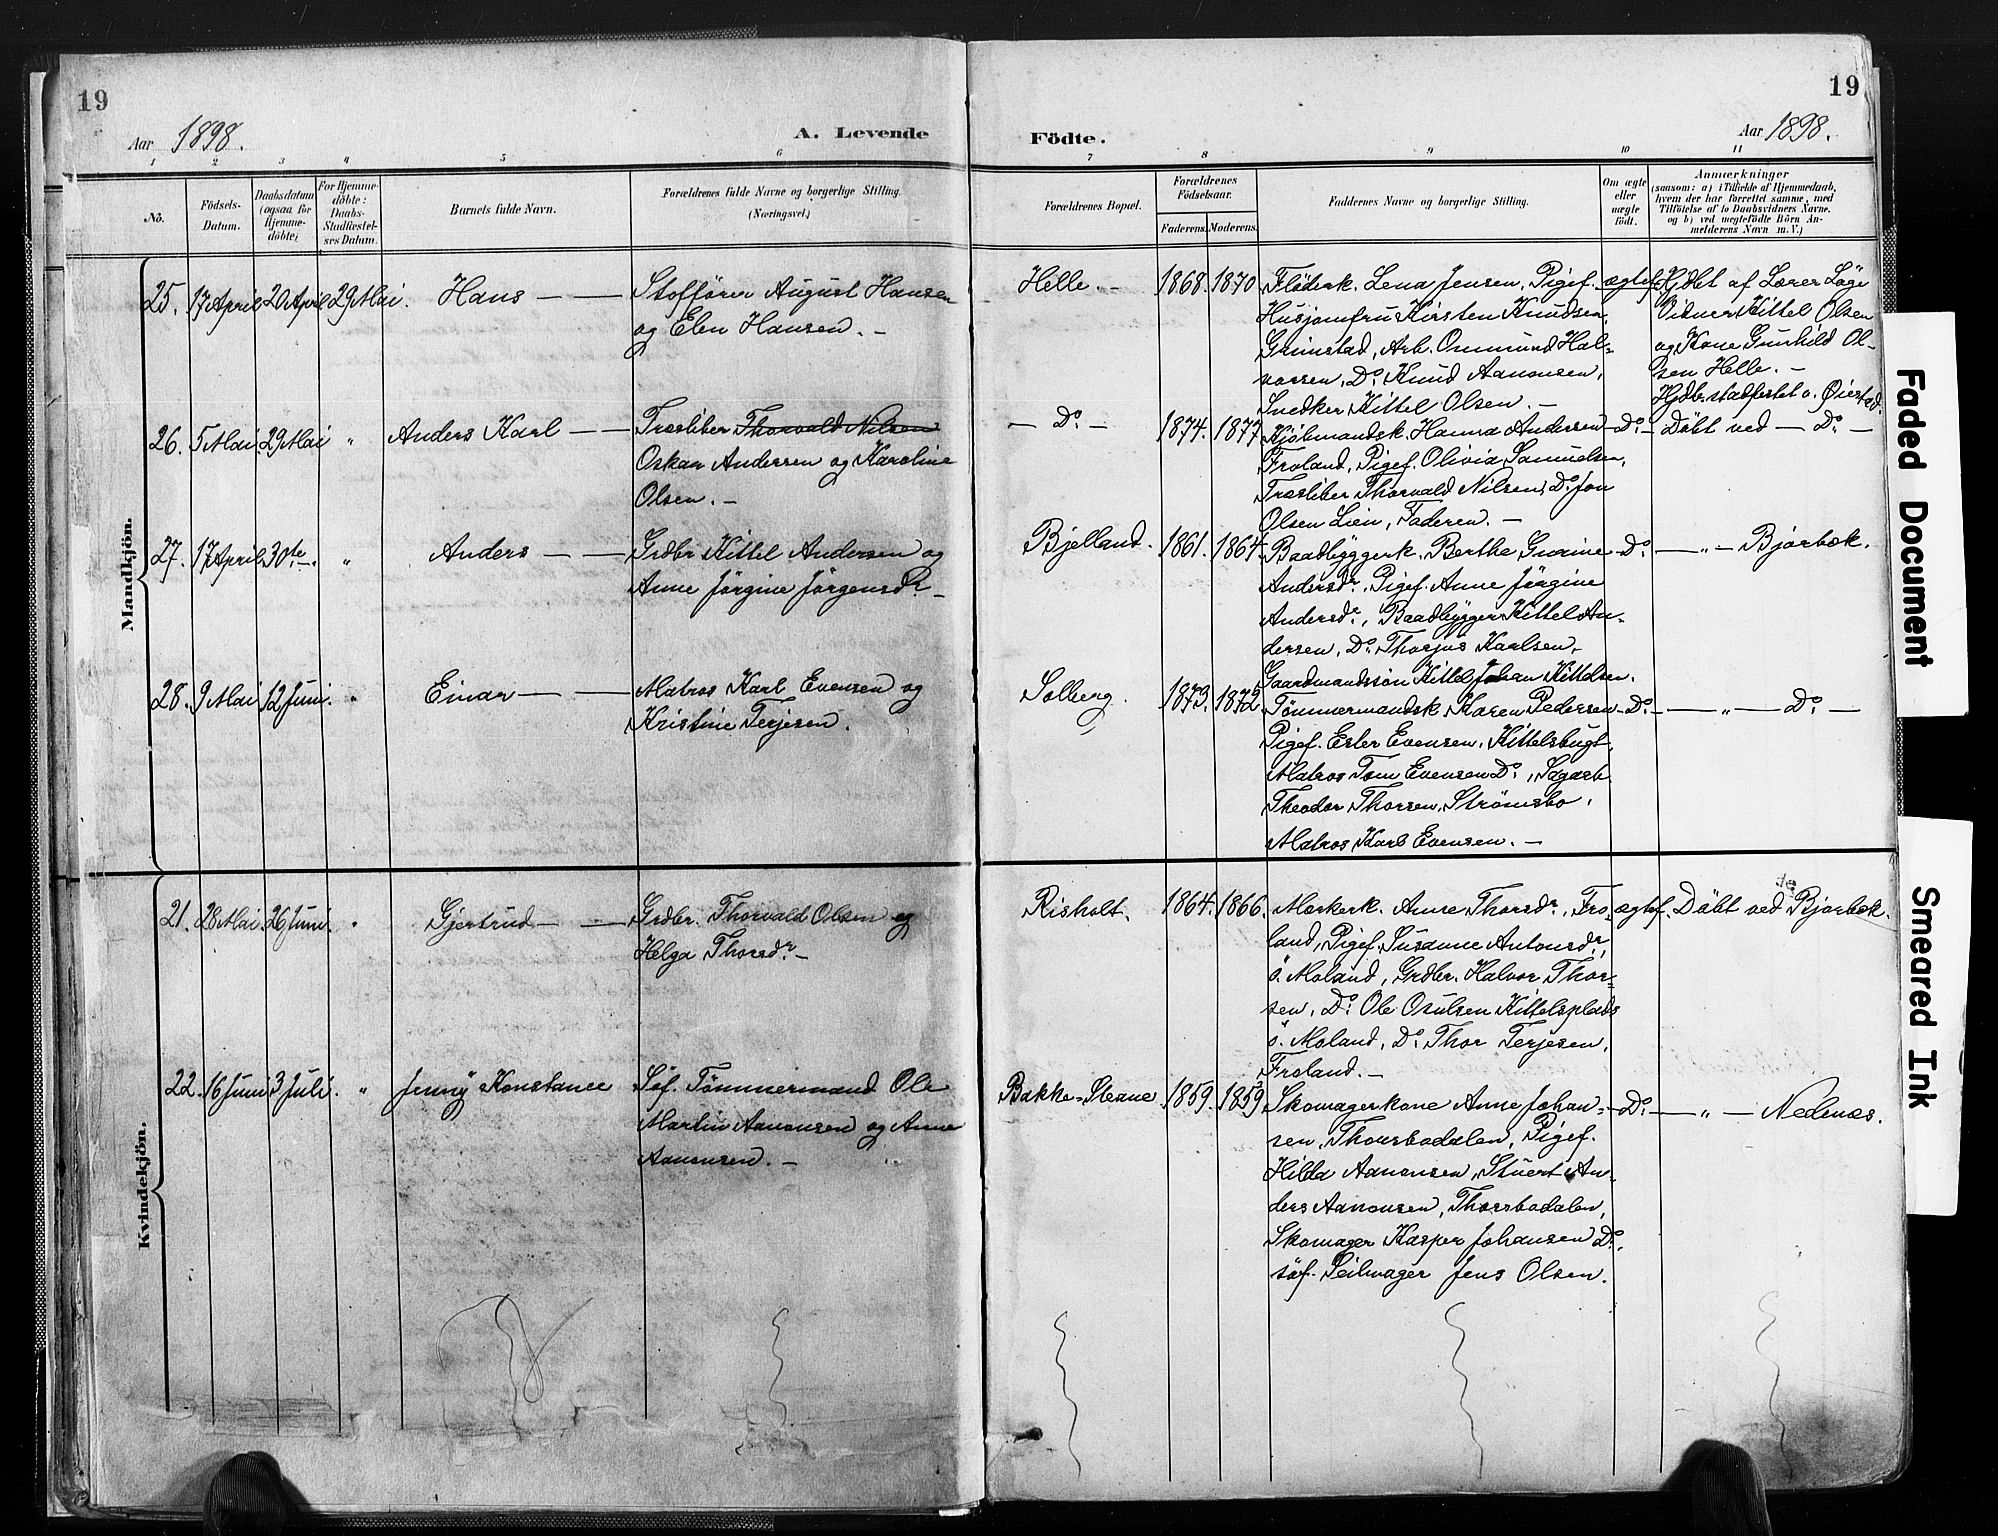 19
Aar 1898.
A. Levende
Födte.
Aar 1898.
19
1 2 3 4 5 6 7 8 9 10 11
No.
Födsels-
Datum.
Daabsdatum
(ogsaa for
Hjemme-
döbte)
For Hjemme-
döbte:
Daabs-
Stadfæstel-
ses Datum.
Barnets fulde Navn.
Forældrenes fulde Navne og borgerlige Stilling.
(Næringsvei.)
Forældrenes Bopæl.
Forældrenes
Födselsaar.
Faderens. Moderens.
Faddernes Navne og borgerlige Stilling.
Om ægte
eller
uægte
födt.
Anmærkninger
(saasom: a) i Tilfælde af Hjemmedaab,
hvem der har forrettet samme, med
Tilföielse af to Daabsvidners Navne,
og b) ved uægtefödte Börn An-
melderens Navn m. V.)
Mandkjön.
25. 17 April 20 April 29 Mai. Hans — —
Stoffører August Hansen
og Elen Hansen. —
Helle. — 1868. 1870
Fløderk. Lena Jensen, Pigef.
Husjomfru Kirsten Knudsen,
Grimstad, Arb. Ommund Hal-
vorsen, Do. Knud Aanonsen,
Snedker Kittel Olsen. —
ægtef.
Hjdbt af Lærer Løge
Vidner Kittel Olsen
og Kone Gunhild Ol-
sen Helle. —
Hjdbr. stadfestet v. Øiestad.
26. 5 Mai. 29 Mai " Anders Karl — —
Træsliber Thorvald Nilsen
Oskar Andersen og Karoline
Olsen. —
— Do. — 1874. 1877.
Kjøbmandsk. Hanna Andersen
Froland, Pigef. Olivia Samuelsen,
Træsliber Thorvald Nilsen, Do. Jon
Olsen Lien, Faderen. —
Do. — Döbt ved — Do. —
27. 17 April 30te —. " Anders — —
Grdbr. Kittel Andersen og
Anne Jørgine Jørgensdr. —
Bjelland. 1861. 1864.
Baadbyggerk. Berthe Gurine
Andersdr., Pigef. Anne Jørgine
Andersdr., Baadbygger Kittel An-
dersen, Do. Thorjus Karlsen,
Gaardmandssøn Kittel Johan Kittelsen.
Do. — " — Bjorbæk.
28. 9 Mai 12 Juni. " Einar — —
Matros Karl Evensen og
Kristine Terjesen.
Solberg. 1873. 1872
Tømmermandsk. Karen Pedersen
Pigef. Ester Evensen, Kittelsbugt,
Matros Tom Evensen Do., Sagarb.
Theodor Thorsen, Strømsbo,
Matros Karl Evensen. —
Do. — — " — Do. —
Kvindekjön.
21. 28 Mai. 26 Juni. " Gjertrud — —
Grdbr. Thorvald Olsen og
Helga Thorsdr. —
Risholt. 1864. 1866.
Mækerk. Anne Thorsdr., Fro-
land, Pigef. Susanne Antonsdr.,
ö. Moland, Grdbr. Halvor Thor-
sen, Do. Ole Osulsen Kittelsplads
ö. Moland, Do. Thor Terjesen,
Froland. —
ægtef. Döbt ved Bjorbæk.
22. 16 Juni 3 Juli. " Jenny Konstance
Søf. Tømmermand Ole
Martin Aanonsen og Anne
Aanonsen. —
Bakke-Steane 1859. 1859
Skomagerkone Anne Johan-
sen, Thorsbodalen, Pigef.
Hilda Aanonsen, Stuert An-
ders Aanonsen, Thorsbodalen,
Skomager Kasper Johansen Do.,
søf. Seilmager Jens Olsen.
Do. — " — Nedenæs.
Faded Document
Smeared Ink